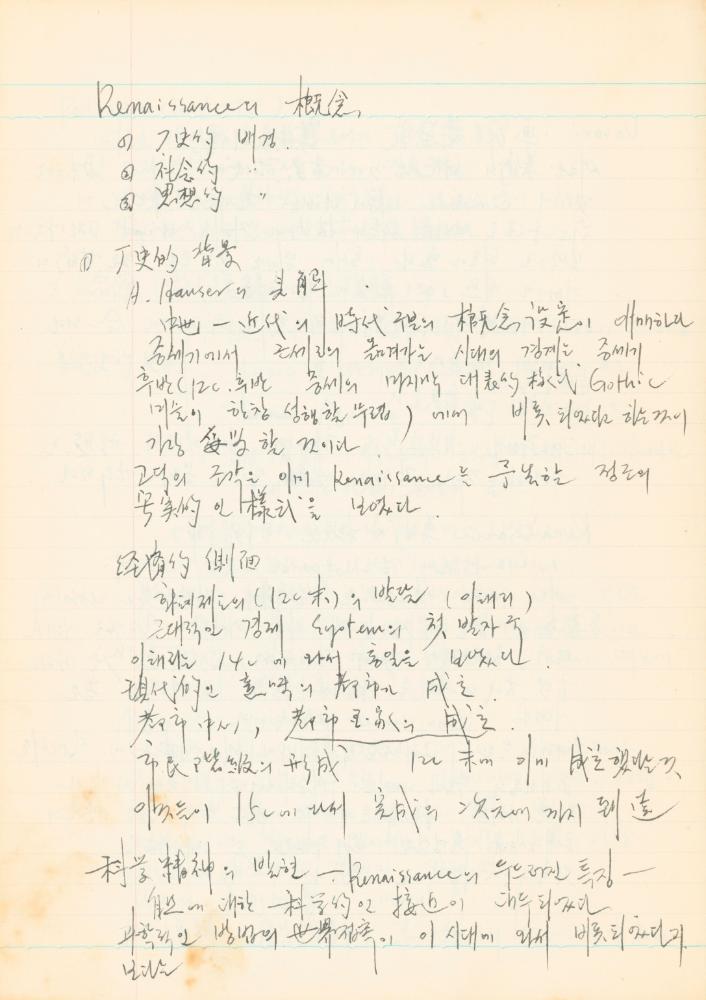 Renaissance의 概念,
① 歷史的 배경.
② 社会的 〃
③ 思想的 〃
① 歷史的 背景
A. Hauser의 見解.
中世 — 近代의 時代 구분의 概念 設定이 애매하다
중세기에서 근세로의 옮겨가는 시대의 경계는 중세기
후반(12C.후반 중세의 마지막 대표的 様式 Gothic
미술이 한창 성행할 무렵) 에서 비롯 되었다고 하는것이
가장 할 것이다.
고딕의 조각은 이미 Renaissance를 정도의
写実的인 樣式을 보였다.
経済的 側面
화폐제도의 (12C末)의 발달 (이태리)
근대적인 경제 System의 첫 발자국
이태리는 14C에 와서 통일을 보였다.
現代的인 意味의 都市가 成立.
都市 中心, 都市 国家의 成立.
市民 階級의 形成 12C 末에 이미 成立했다는 것,
이것들이 15C에 와서 完成의 次元에 까지 到達
科学 精神의 발현 — Renaissance의 두드러진 특징 —
自然에 대한 科学的인 接近이 대두되었다
과학적인 방법의 世界 이 시대에 와서 비롯되었다고
보다는